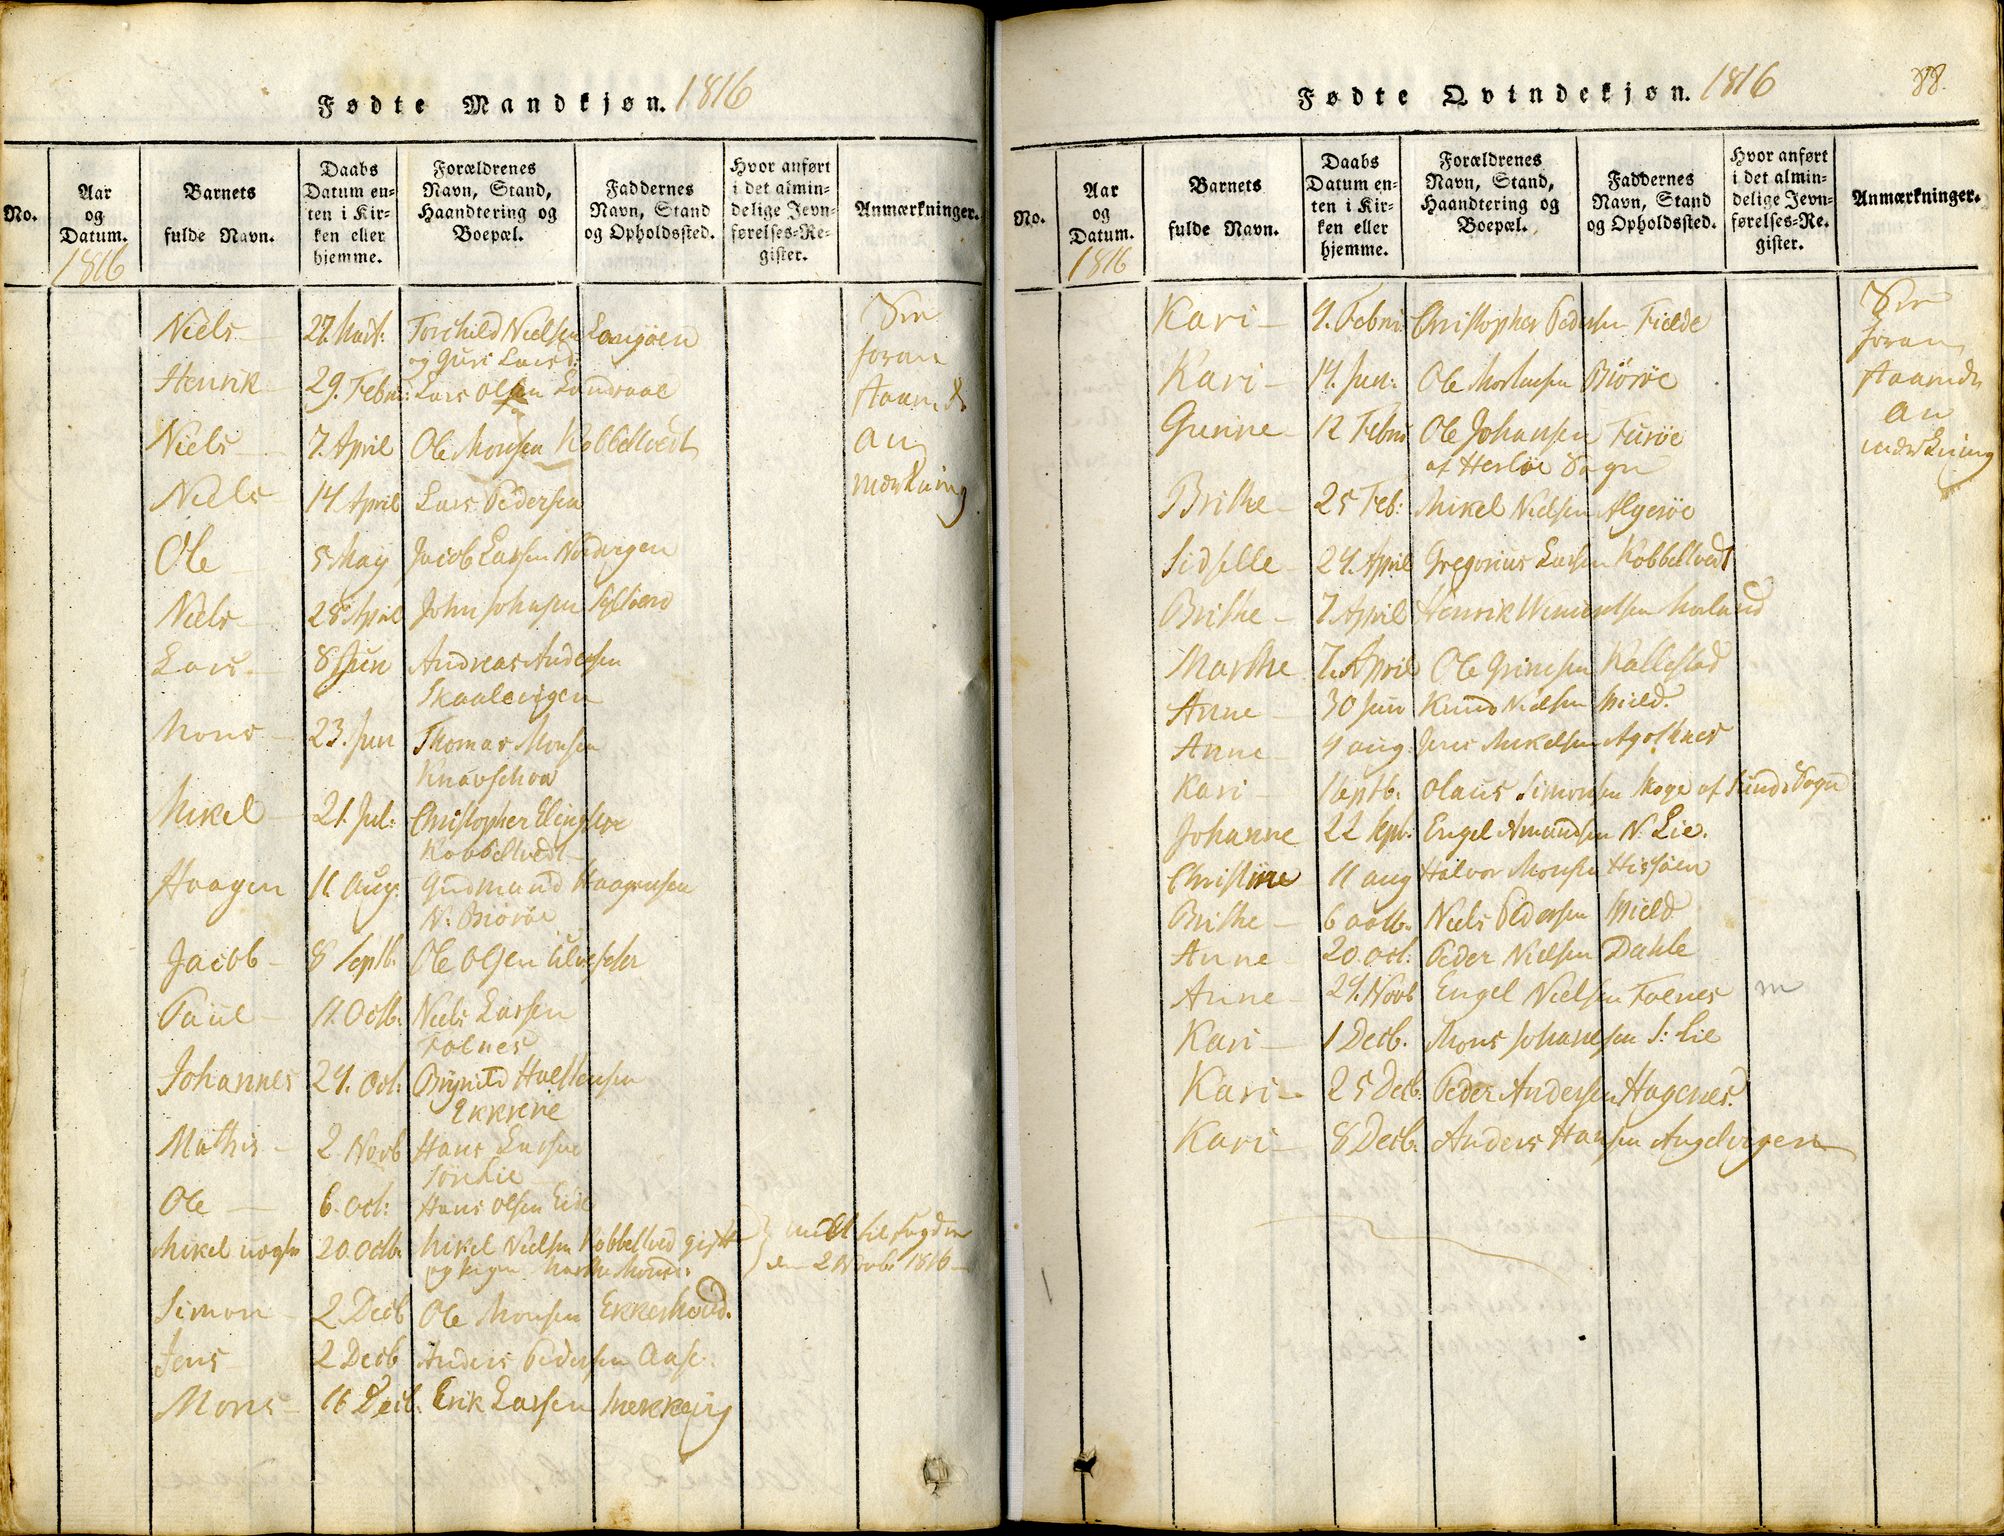 Fødte Mandkjøn. 1816
No.
Aar
og
Datum.
1816
Barnets
fulde Navn.
Daabs
Datum en=
ten i Kir=
ken eller
hjemme.
Forældrenes
Navn, Stand,
Haandtering og
Boepæl.
Faddernes
Navn, Stand
og Opholdssted.
Hvor anført
i det almin=
delige Jevn=
førelses=Re=
gister.
Anmærkninger.
Niels 27. Torchild Nielsen Langøen
og Guri Larsd:
Henrik 29. Febru: Lars Olsen
Niels 7. April Ole Monsen Kobbeltvedt
Niels 14 April Lars Pedersen
Ole 5 May Jacob Larsen
Niels 28 April John Johnsen
Lars 8 Jun Andreas Andersen
Skaalevigen
Mons 23. Jun Thomas Monsen
Mikel 21. Jul: Christopher
Kobbeltvedt
Haagen 11. Aug: Gudmund Haagensen
N: Biörøe
Jacob 8 Septb: Ole Olsen
Paul 11. Octb: Niels Larsen
Foenes
Johannes 24. Oct:
Ekkrene
Mathis 2 Novb Hans Larsen
Ole 6. Oct: Hans Olsen Eide
Mikel uægte 20. Octb: Mikel Nielsen Kobbeltved gift
og pigen Marthe Monsd:
den 2 Novb: 1816
Simon 2. Decb Ole Monsen Ekkerhovd.
Jens 2 Decb Anders Pedersen Aase.
Mons 16 Decb. Erik Larsen
foran
an
mærkning
Fødte Qvindekjøn. 1816
88.
No.
Aar
og
Datum.
1816
Barnets
fulde Navn.
Daabs
Datum en=
ten i Kir=
ken eller
hjemme.
Forældrenes
Navn, Stand,
Haandtering og
Boepæl.
Faddernes
Navn, Stand
og Opholdssted.
Hvor anført
i det almin=
delige Jevn=
førelses=Re=
gister.
Anmærkninger.
Kari 9. Febru: Christopher Pedersen Fielde
Kari 14. Jan: Ole Mortensen Biörøe
Gunne 12 Febru Ole Johansen Turøe
af Herløe Sogn
Brithe 25 Feb: Mikel Nielsen Algerøe
Sidselle 24. April Gregorius Larsen Kobbeltvedt
Brithe 7 April Henrik
Marthe 7. April Ole Grimsen Kallestad
Anne 30 Jun Knud Nielsen Spield.
Anne 4 aug: Jens Mikelsen Agothnes
Kari 1 Septb: Olaus Simonsen af Sunds Sogn
Johanne 22 Sept: Engel Amundsen N. Lie.
Christine 11 aug Halvor Monsen
Brithe 6 octb: Niels Pedersen Spield
Anne 20. Oct: Peder Nielsen Dahle
Anne 24. Novb Engel Nielsen Foenes
Kari 1 Decb. Mons Johanesen S: Lie
Kari 25 Decb. Peder Andersen Hagenes.
Kari 8 Decb. Anders Hansen Angelvigen
foran
an
mærkning